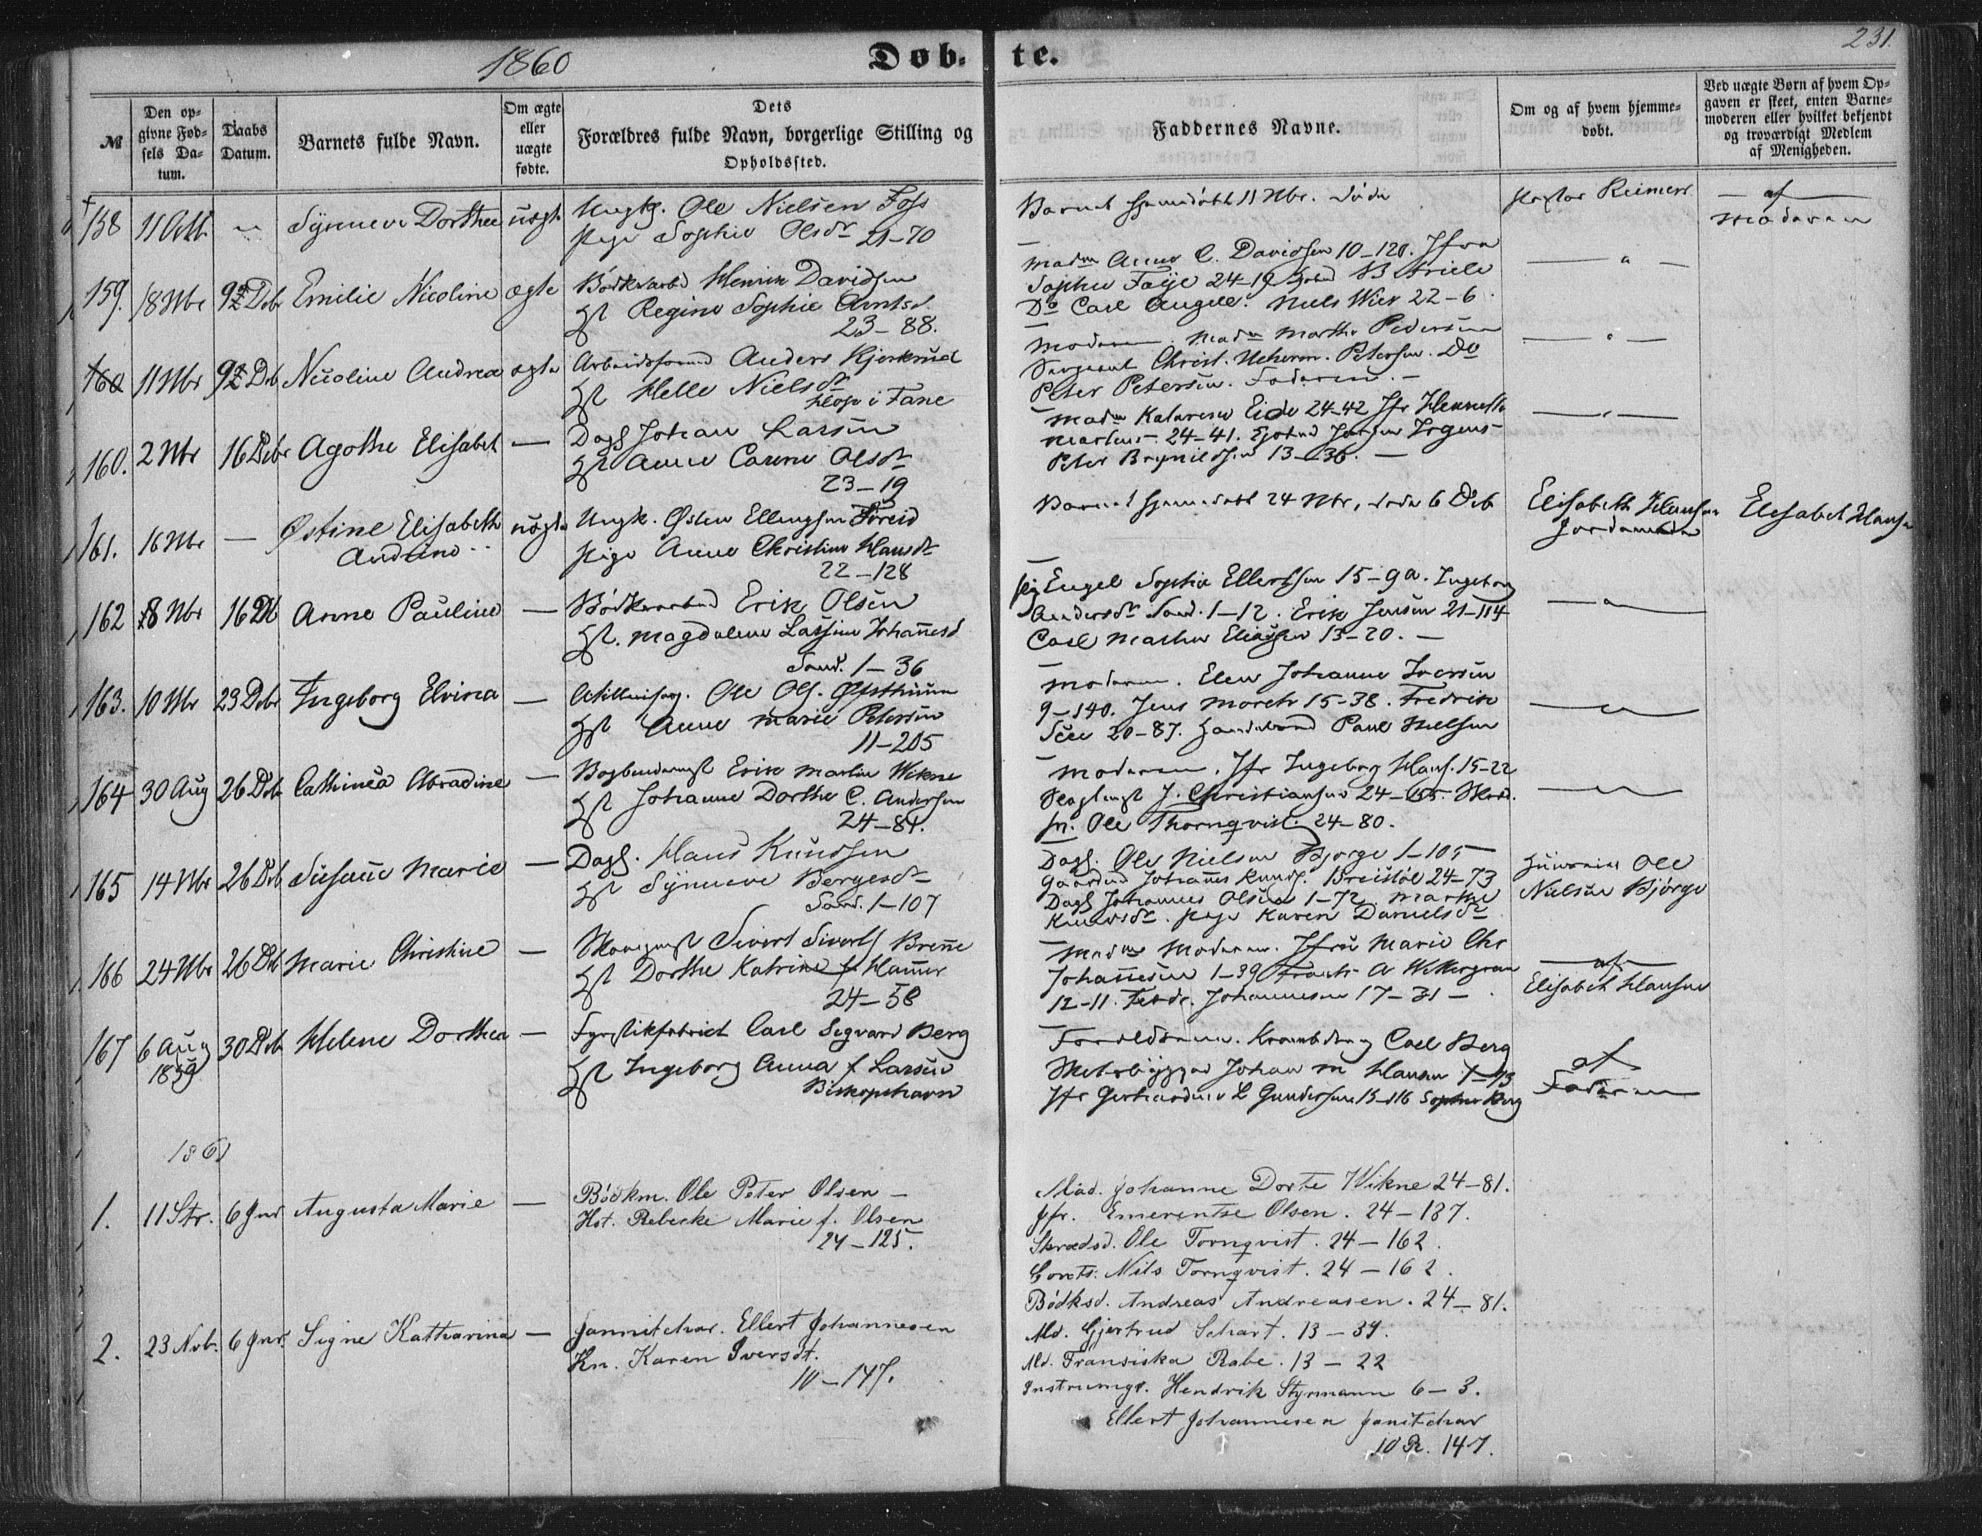 1860
Døb-
te.
231.
№
Den op-
givne Fød-
sels Da-
tum.
Daabs
Datum.
Barnets fulde Navn.
Om ægte
eller
uægte
fødte.
Dets
Forældres fulde Navn, borgerlige Stilling og
Opholdssted.
Faddernes Navne.
Om og af hvem hjemme-
døbt.
Ved uægte Børn af hvem Op-
gaven er skeet, enten Barne-
moderen eller hvilket bekjendt
og troværdigt Medlem
af Menigheden.
158 11 Oct. — Synneve Dorthea uægte Ungk. Ole Nielsen Foss
Pige Sophie Olsdr 21-70
Barnet hjemdøbt 11 Nbr. døde
Pastor Reimers
af
Moderen
159. 18 Nbr 9 Dcbr Emilie Nicoline ægte Bødkerarbd Henrik Davidsen
Hst Regine Sophie Arntsd.
23-88.
Madm Anne C. Davidsen 10-120. Jfr
Sophie Faye 24-19
Do Carl Angell. Niels Wier 22-6.
160 11 Nbr 9 Dcb Nicoline Andrea ægte Arbeidsmand Anders Kjerkrud
Hst Helle Nielsdr
Hop i Fane
Moderen, Madm Marthe Pedersen
Sergeant Christ. Petersen. Do
Peter Petersen. Faderen. —
160. 2 Nbr 16 Debr Agothe Elisabet — Dagl Johan Larsen
Hst Anne Carine Olsdr
23-19
Madm Eide 24-42 Jfr
Martens 24-41. Irgens
Peter Brynildsen 13-36. —
161. 16 Nbr — Østine Elisabeth uægte Ungk. Østen Ellingsen
Andrine
Pige Anne Christine Hansdr
22-128
Barnet hjemdøbt 24 Nbr, døde 6 Dcb
Elisabeth Hansen
Jordemoder
Elisabet Hansen
162 18 Nbr 16 Db Anne Pauline — Bødkerarbd Erik Olsen
Hst. Magdalene Lassine Johannesd
Sand. 1-36
Pig Engel Sophie Ellertsen 15-9a. Ingeborg
Andersdr Sand. 1-12. Erik Jensen 21-114
Carl Martin Eliassen 13-20. —
163. 10 Nbr 23 Debr Ingeborg Elvina — Ole Ols.
Hst Anne Marie Petersen
11-205
Moderen. Elen Johanne Iversen
9-140. Jens Morch 15-38. Fredrik
20-87. Paul Nielsen
164 30 Aug 26 Dcb Cathinca Abradine — Bogbindermst Erik Martin Wikne
Hst Johanne Dorthe C. Andersen
24-81.
Moderen. Jfr Ingeborg Hans. 15-22
J. Christiansen 24-165.
Ole Thornqvist 24-80.
165 14 Nbr 26 Dcb Susanne Marie — Dagl. Hans Knudsen
Hst Synneve Børgesdr
Sand. 1-107
Dagl. Ole Nielsen Bjørge 1-105
Gaardmd Johannes Knuds. Breistøl 24-73
Dagl Johannes Olsen 1-72. Marthe
Knudsdr. Pige Karen Danielsdr
Ole
Nielsen Bjørge
166 24 Nbr 26 Dcb Marie Christine — Skomgmst Sivert Siverts Brenne
Hst Dorthe Katrine f Hammer
24-58
Madm Moderen. Jfru Marie Chr
Johannesen 1-39
12-11. Fredr. Johannesen 17-31 —
af
Elisabet Hansen
167 6 Aug 30 Dcb Helene Dorthea — Fyrstikfabrict Carl Segvard Berg
1859
Hst Ingeborg Anna f Larsen
Biskopshavn
Forældrene. Carl Berg
Johan M Hansen 1-73
Jfr Gerhardine L Gundersen 15-116 Sophie Berg
af
Faderen
1861
1. 11 Str. 6 Jnr Augusta Marie — Bødkm. Ole Peter Olsen —
Hst. Rebekke Marie f. Olsen
24-125.
Mad. Johanne Dorte Wikne 24-81.
Jfr. Emerentse Olsen. 24-137.
Skrædsd. Ole Tornqvist. 24-162.
Conts. Nils Tornqvist. 24-162.
Bødksd. Andreas Andreasen. 24-81.
2. 23 Nvb. 6 Jnr. Signe Katharina — Jannitchar. Ellert Johannesen
Kn. Karen Iversdt.
10-147.
Md. Gjertrud Schart. 13-34.
Md. Fransiska Rabe. 13-22
Instrumgr. Hendrik Styrmann 6-3.
Ellert Johannesen Janitchar
10 R. 147.